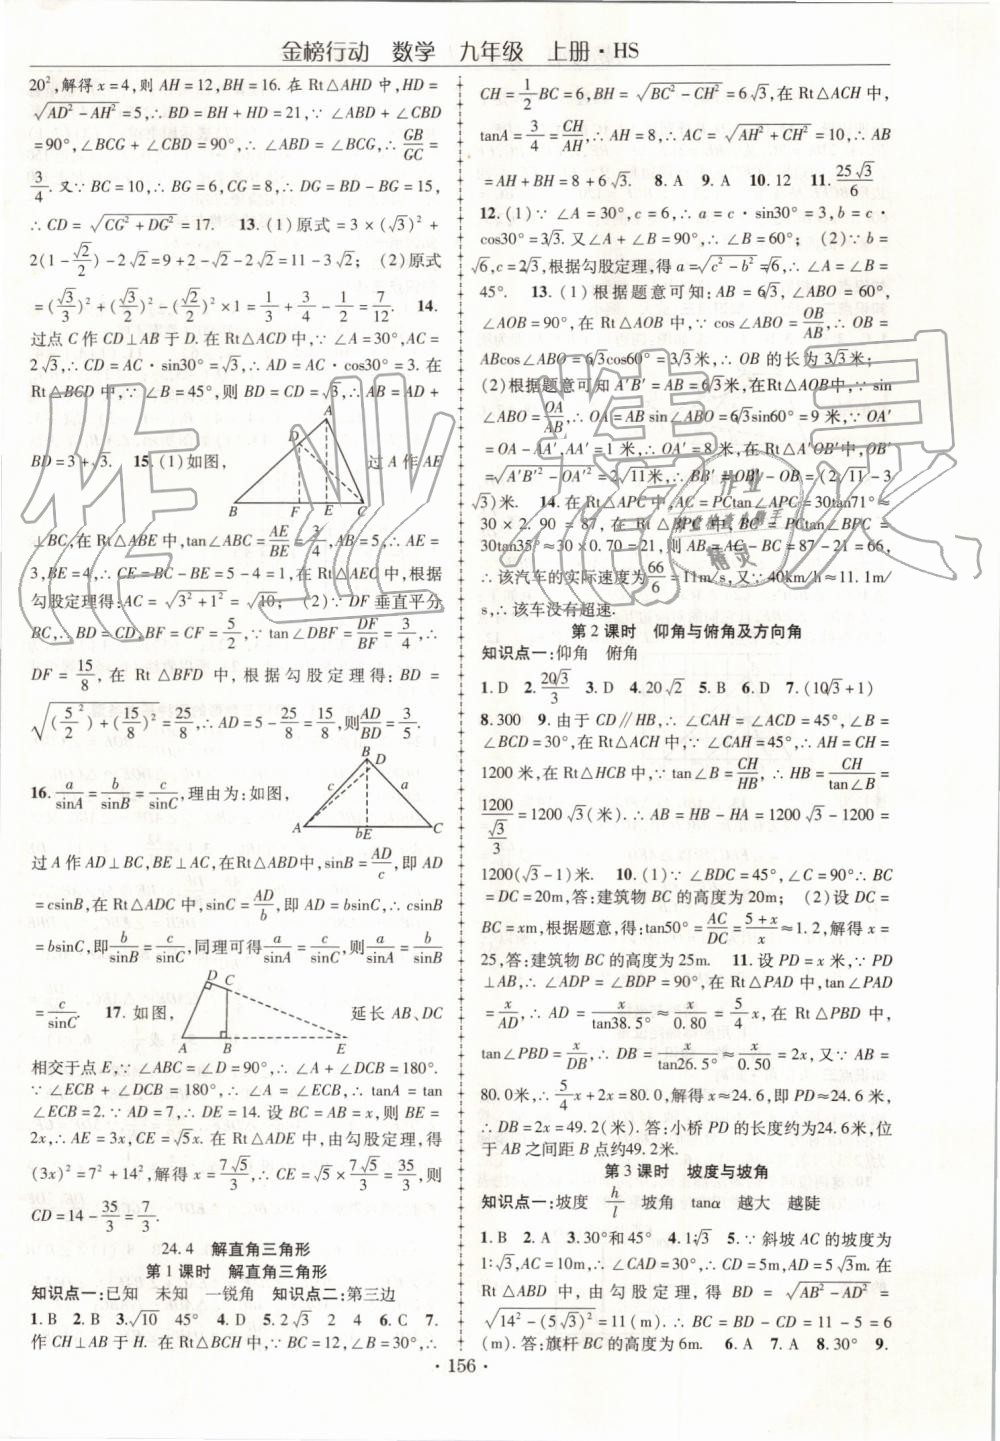 金榜行动 数学 九年级 上册·HS
20²,解得x=4,则AH=12,BH=16.在Rt△AHD中,HD=
√(AD²-AH²)=5,∴BD=BH+HD=21,∵∠ABD+∠CBD
=90°,∠BCG+∠CBD=90°,∴∠ABD=∠BCG,∴GB/GC=
3/4.又∵BC=10,∴BG=6,CG=8,∴DG=BD-BG=15,
∴CD=√(CG²+DG²)=17. 13.(1)原式=3×(√3)²+
2(1-√2/2)-2√2=9+2-√2-2√2=11-3√2;(2)原式
=(√3/3)²+(√3/2)²-(√2/2)²×1=1/3+3/4-1/2=7/12. 14.
过点C作CD⊥AB于D.在Rt△ACD中,∵∠A=30°,AC=
2√3,∴CD=AC·sin30°=√3,∴AD=AC·cos30°=3.在
Rt△BCD中,∵∠B=45°,则BD=CD=√3,∴AB=AD+
BD=3+√3. 15.(1)如图, 过A作AE
A D B F E C
⊥BC,在Rt△ABE中,tan∠ABC=AE/BE=3/4,AB=5,∴AE=
3,BE=4,∴CE=BC-BE=5-4=1,在Rt△AEC中,根据
勾股定理得:AC=√(3²+1²)=√10;(2)∵DF垂直平分
BC,∴BD=CD,BF=CF=5/2,∴tan∠DBF=DF/BF=3/4,∴
DF=15/8,在Rt△BFD中,根据勾股定理得:BD=
√((5/2)²+(15/8)²)=25/8,∴AD=5-25/8=15/8,则AD/BD=3/5.
16. a/sinA=b/sinB=c/sinC,理由为:如图,
B D c a A bE C
过A作AD⊥BC,BE⊥AC,在Rt△ABD中,sinB=AD/c,即AD
=csinB,在Rt△ADC中,sinC=AD/b,即AD=bsinC,∴csinB
=bsinC,即b/sinB=c/sinC,同理可得a/sinA=c/sinC,则a/sinA=b/sinB
=c/sinC. 17.如图, 延长AB、DC
D C A B E
相交于点E,∵∠ABC=∠D=90°,∴∠A+∠DCB=180°.
∵∠ECB+∠DCB=180°,∴∠A=∠ECB,∴tanA=tan
∠ECB=2.∵AD=7,∴DE=14.设BC=AB=x,则BE=
2x,∴AE=3x,CE=√5x.在Rt△ADE中,由勾股定理,得
(3x)²=7²+14²,解得x=7√5/3,∴CE=√5×7√5/3=35/3,则
CD=14-35/3=7/3.
24.4 解直角三角形
第1课时 解直角三角形
知识点一:已知 未知 一锐角 知识点二:第三边
1.B 2.B 3.√10 45° 4.D 5.2√3 2 4 6.C 7.
作CH⊥AB于H.在Rt△BCH中,∵BC=12,∠B=30°,∴
CH=1/2BC=6,BH=√(BC²-CH²)=6√3,在Rt△ACH中,
tanA=3/4=CH/AH,∴AH=8,∴AC=√(AH²+CH²)=10,∴AB
=AH+BH=8+6√3. 8.A 9.A 10.12 11.25√3/6
12.(1)∵∠A=30°,c=6,∴a=c·sin30°=3,b=c·
cos30°=3√3.又∠A+∠B=90°,∴∠B=60°;(2)∵b=
√6,c=2√3,根据勾股定理,得a=√(c²-b²)=√6,∴∠A=∠B=
45°. 13.(1)根据题意可知:AB=6√3,∠ABO=60°,
∠AOB=90°,在Rt△AOB中,∵cos∠ABO=OB/AB,∴OB=
ABcos∠ABO=6√3cos60°=3√3米,∴OB的长为3√3米;
(2)根据题意可知A′B′=AB=6√3米,在Rt△AOB中,∵sin
∠ABO=OA/AB,∴OA=AB sin∠ABO=6√3sin60°=9米,∵OA′
=OA-AA′,AA′=1米,∴OA′=8米,在Rt△A′OB′中,OB′
=√(A′B′²-OA′²)=2√11米,∴BB′=OB′-OB=(2√11-3
√3)米. 14.在Rt△APC中,AC=PCtan∠APC=30tan71°≈
30×2.90=87,在Rt△BPC中,BC=PCtan∠BPC=
30tan35°≈30×0.70=21,则AB=AC-BC=87-21=66,
∴该汽车的实际速度为66/6=11m/s,又∵40km/h≈11.1m/
s,∴该车没有超速.
第2课时 仰角与俯角及方向角
知识点一:仰角 俯角
1.D 2.20√3/3 3.D 4.20√2 5.B 6.D 7.(10√3+1)
8.300 9.由于CD∥HB,∴∠CAH=∠ACD=45°,∠B=
∠BCD=30°,在Rt△ACH中,∵∠CAH=45°,∴AH=CH=
1200米,在Rt△HCB中,∵tan∠B=CH/HB,∴HB=CH/tan∠B=
1200/(√3/3)=1200√3(米).∴AB=HB-HA=1200√3-1200=
1200(√3-1)米. 10.(1)∵∠BDC=45°,∠C=90°∴BC
=DC=20m,答:建筑物BC的高度为20m; (2)设DC=
BC=xm,根据题意,得:tan50°=AC/DC=(5+x)/x≈1.2,解得x=
25,答:建筑物BC的高度为25m. 11.设PD=x米,∵PD
⊥AB,∴∠ADP=∠BDP=90°,在Rt△PAD中,tan∠PAD
=x/AD,∴AD=x/tan38.5°≈x/0.80=5/4x,在Rt△PBD中,
tan∠PBD=x/DB,∴DB=x/tan26.5°≈x/0.50=2x,又∵AB=
80.0米,∴5/4x+2x=80.0,解得x≈24.6,即PD≈24.6米,
∴DB=2x=49.2(米).答:小桥PD的长度约为24.6米,位
于AB之间距B点约49.2米.
第3课时 坡度与坡角
知识点一:坡度 h/l 坡角 tanα 越大 越陡
1.B 2.A 3.30°和45° 4.1:√3 5.∵斜坡AC的坡度为
1:√3,AC=10m,∴∠CAD=30°,∴CD=5m,AD=5√3m.在
Rt△ABD中,由勾股定理,得BD=√(AB²-AD²)=
√(14²-(5√3)²)=11(m),∴BC=BD-CD=11-5=6
(m).答:旗杆BC的高度为6m. 6.A 7.A 8.A 9.
·156·
作业精灵